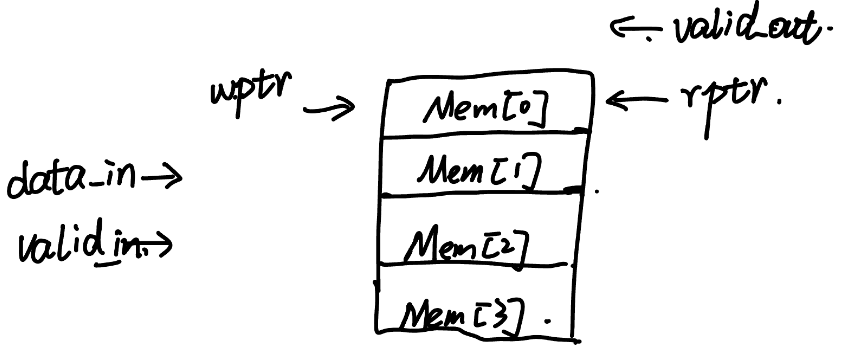 valid_out.
wptr
Mem[0]
rptr.
data_in
Mem[1]
valid_in.
Mem[2]
Mem[3]